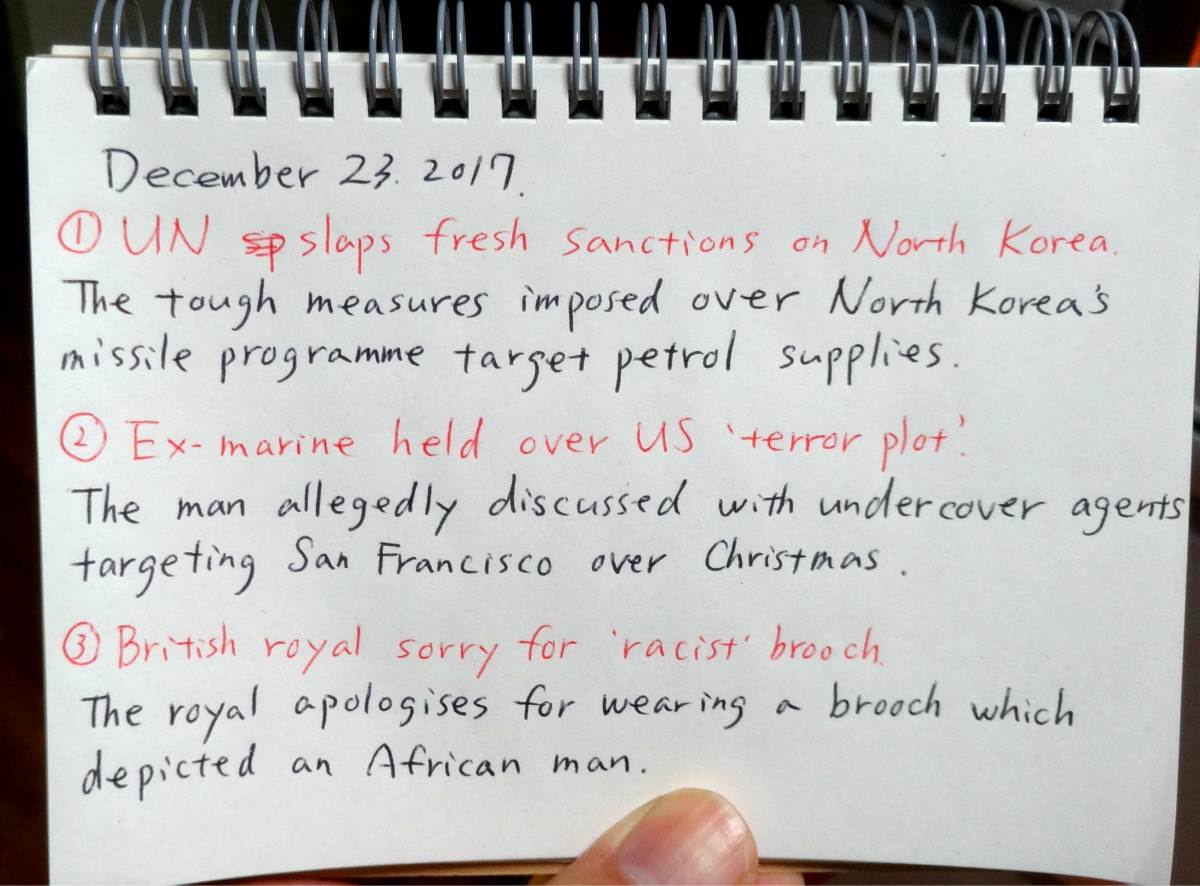 December 23. 2017.
① UN slaps fresh sanctions on North Korea.
The tough measures imposed over North Korea's
missile programme target petrol supplies.
② Ex-marine held over US 'terror plot'.
The man allegedly discussed with undercover agents
targeting San Francisco over Christmas.
③ British royal sorry for 'racist' brooch.
The royal apologises for wearing a brooch which
depicted an African man.